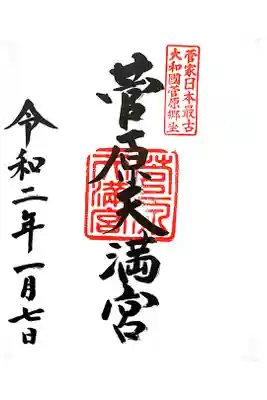 菅家日本最古
大和國菅原郷坐
菅原天満宮
令和二年一月七日